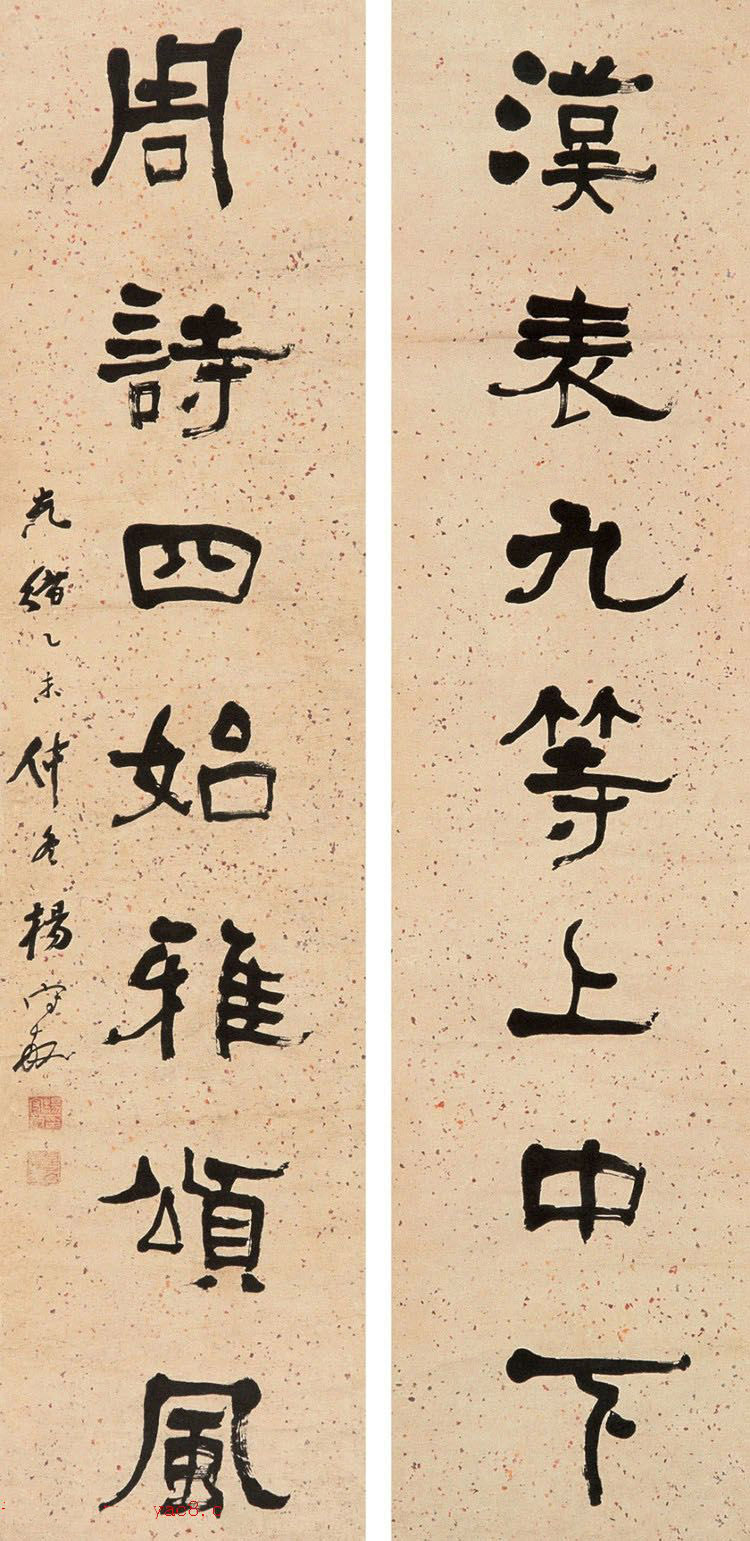 漢表九等上中下
周詩四始雅頌風
光緒乙未仲冬楊守敬
yac8.c